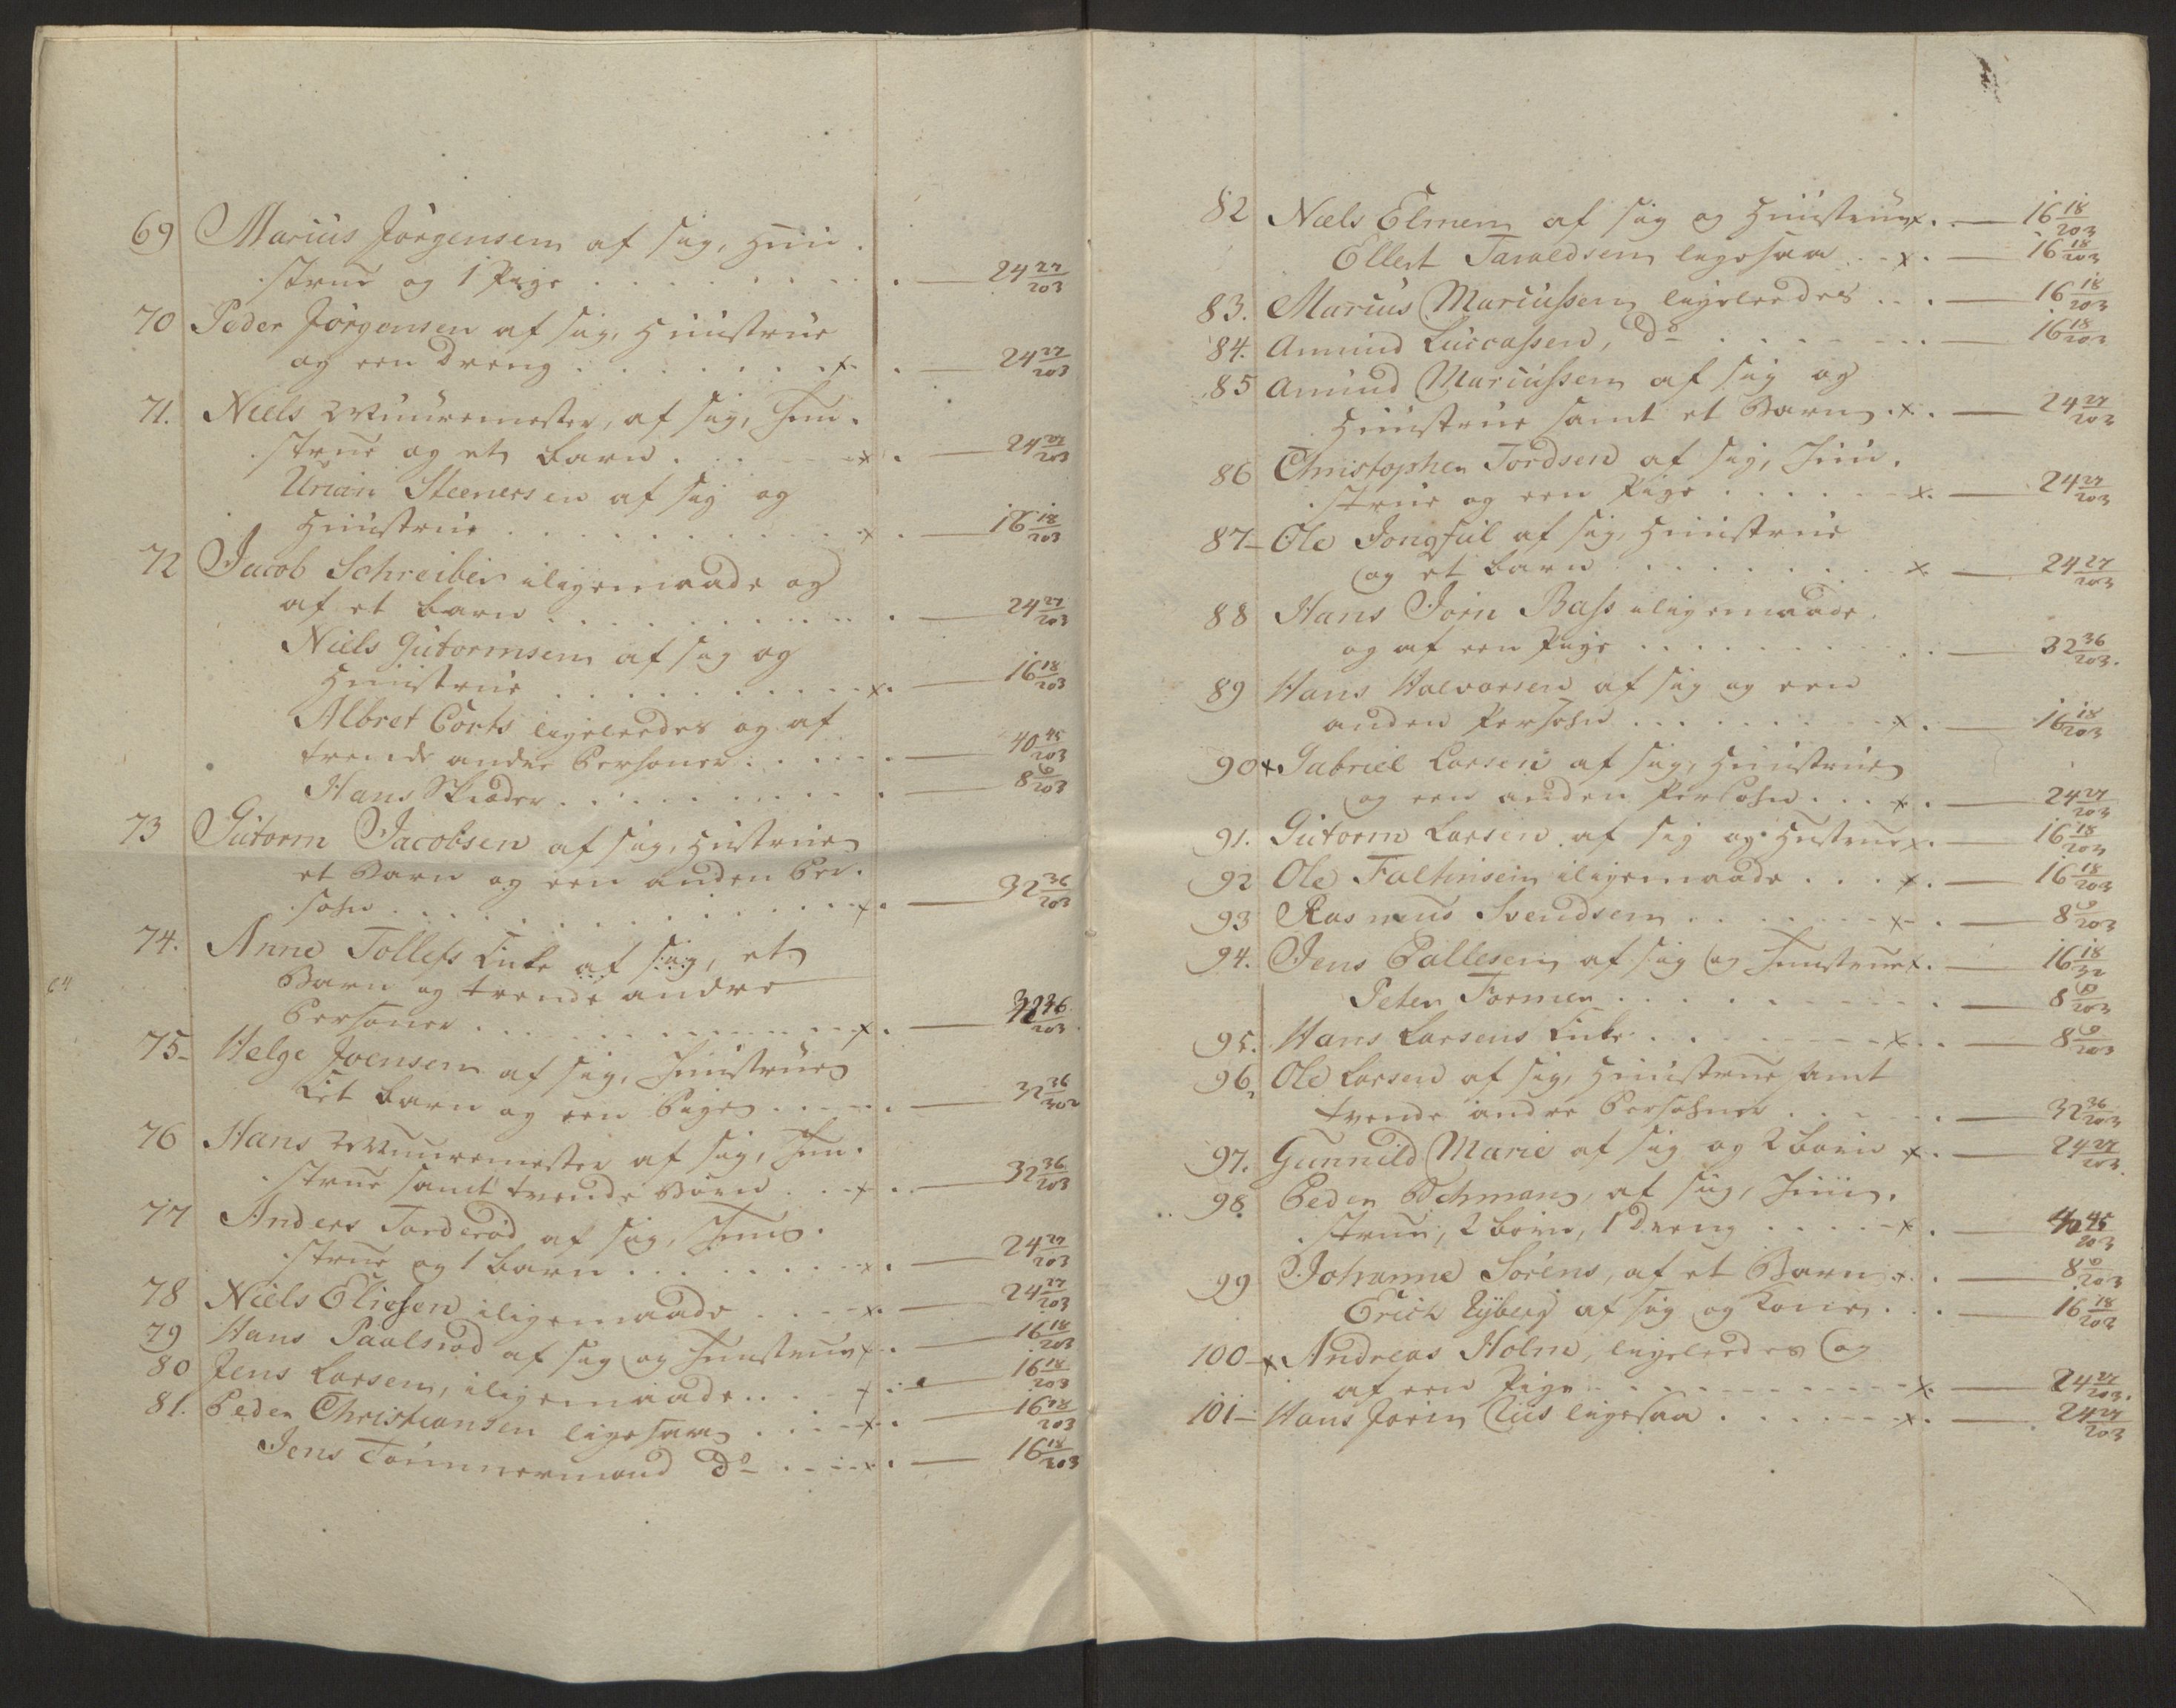 69 Marius Jørgensen af sig, Huu-
strue og 1 Pige . . . . . — 24 27/203
70 Peder Jørgensen af sig, Huustrue
og een Dreng . . . . . x. — 24 27/203
71. Niels Muuremester, af sig, Huu-
strue og et Barn . . . x. — 24 27/203
Urian Steenersen af sig og
Huustrue . . . . . x. — 16 18/203
72 Jacob Schreiber iligemaade og
af et Barn . . . . . — 24 27/203
Niels Gutormsen af sig og
Huustrue . . . . . x. — 16 18/203
Albret Corts ligeleedes og af
trende andre Personer . . . — 40 45/203
Hans Skræder . . . . . — 8 9/203
73 Gutorm Jacobsen af sig, Hustrue
et Barn og een anden Per-
sohn . . . . . x. — 32 36/203
74. Anne Tollefs Enke af sig, et
Barn og trende andre
Personer . . . . . x. — 36/203
75- Helge Joensen af sig, Huustrue
et Barn og een Pige . . . — 32 36/302
76 Hans Muuremester af sig, Huu-
strue samt tvende Børn . . x. — 32 36/203
77 Anders Torderød af sig, Huu-
strue og 1 Barn . . . . . x. — 24 27/203
78 Niels Eliesen iligemaade . . . x. — 24 27/203
79 Hans Paulsrød af sig og Huustrue x. — 16 18/203
80 Jens Larsen, iligemaade . . . x. — 16 18/203
81. Peder Christiansen ligesaa . . . x. — 16 18/203
Jens Tømmermand Do . . . x. — 16 18/203
64
82 Niels Elmen af sig og Huustrue x. — 16 18/203
Ellert Taraldsen ligesaa . . x. — 16 18/203
83. Marius Mariussen ligeleedes . . . — 16 18/203
84. Amund Luccassen, Do . . . . . — 16 18/203
85 Amund Mariussen af sig og
Huustrue samt et Barn . x. — 24 27/203
86 Christopher Tordsen af sig, Huu-
strue og een Pige . . . . . x. — 24 27/203
87- Ole Jongful af sig, Huustrue
og et Barn . . . . . x. — 24 27/203
88 Hans Jørn Bass iligemaade
og af een Pige . . . . . — 32 36/203.
89 Hans Halvorsen af sig og een
anden Persohn . . . . . x. — 16 18/203
90 x Gabriel Larsen af sig, Huustrue
og een anden Persohn . . . x. — 24 27/203
91. Gutorm Larsen af sig og Hustrue x. — 16 18/203
92 Ole Faltinsen iligemaade . . . x. — 16 18/203
93 Rasmus Svendsen . . . . . x. — 8 9/203
94. Jens Pallesen af sig og Huustrue x. — 16 18/32
Peter Former . . . . . — 8 9/203
95. Hans Larsens Enke . . . . . x. — 8 9/203
96. Ole Larsen af sig, Huustrue samt
tvende andre Persohner . . . — 32 36/203
97. Gunnild Marie af sig og 2 Børn x. — 24 27/203.
98. Peder Dehmans, af sig, Huu-
strue, 2 Børn, 1 Dreng . . . . x. — 40 45/203
99 Johanne Sørens, af et Barn x. — 8 9/203
Erich Nyberg af sig og Kone . . . — 16 18/203
100- x Andreas Holm, ligeleedes og
af een Pige . . . . . x. — 24 27/203.
101- Hans Jørn ligesaa . . . . . x. — 24 27/203